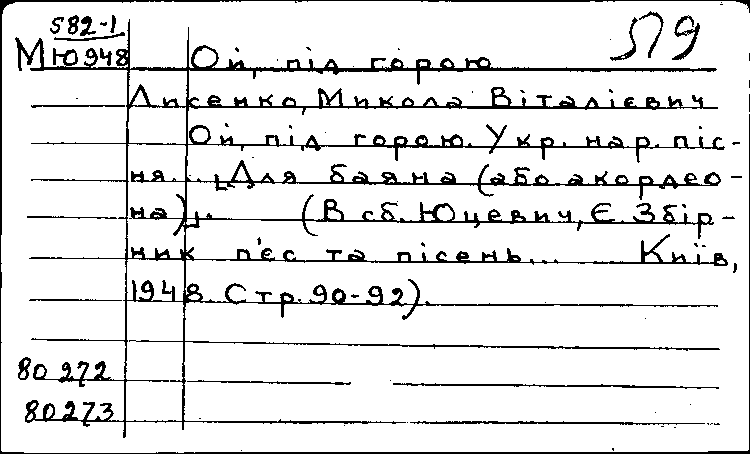 582-1
МЮ948 Ой, під горою П9
Лисенко, Микола Віталієвич
Ой, під горою. Укр. нар. піс-
ня... [Для баяна (або акордео-
на)]. (В сб. Юцевич, Є. Збір-
ник п'єс та пісень... Київ,
1948. Стр. 90-92).
80272
80273